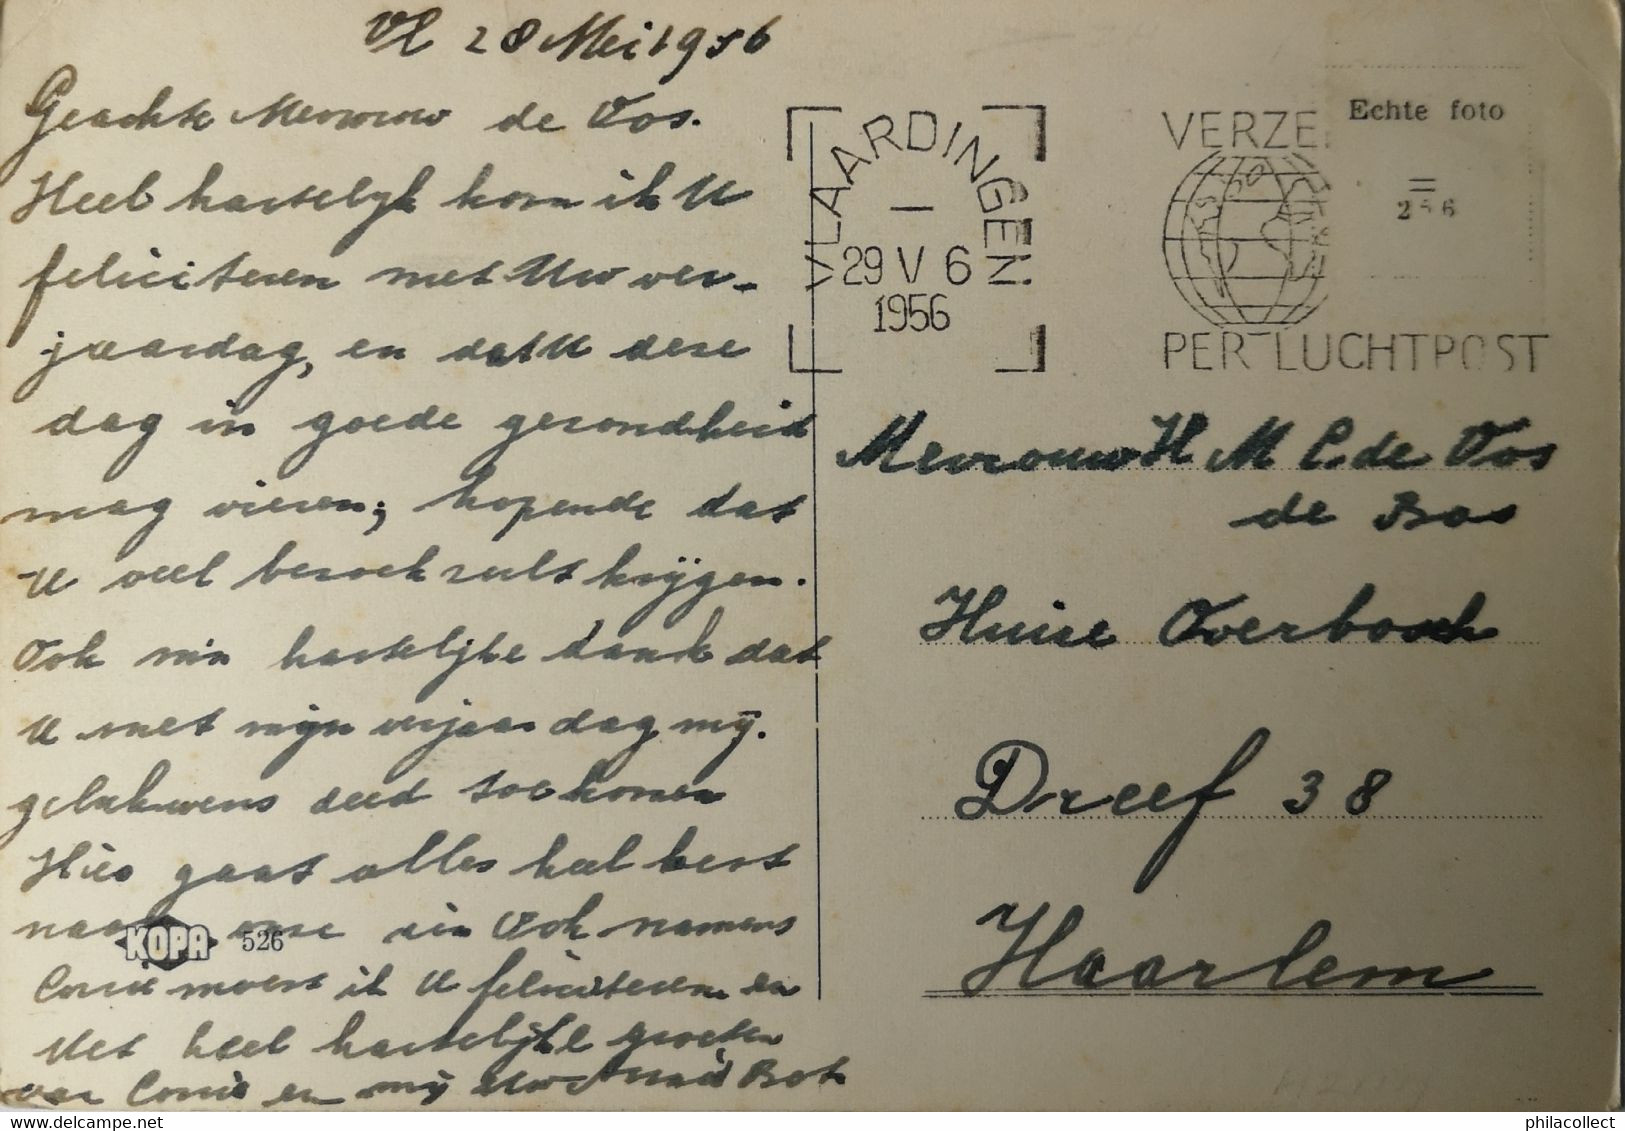 Vl 28 Mei 1956
Geachte Mevrouw de Vos.
Heel hartelijk kom ik U
feliciteren met Uw ver-
jaardag, en dat U dese
dag in goede gesondheid
mag vieren; hopende dat
U veel besoek sult krijgen.
Ook mijn hartelijke dank dat
U met mijn verjaardag mij.
gelukwens deed toekomen
Hier gaat alles heel best
naar onse sin Ook namens
Corrie moest ik U feliciteren en
Met heel hartelijke groeten
van Corrie en mij Bot
KOPA 526
VLAARDINGEN
29 V 6
1956
VERZE
PER LUCHTPOST
Echte foto
=
256
Mevrouw H M C. de Vos
de Bas
Huize Overbosch
Dreef 38
Haarlem
philacollect